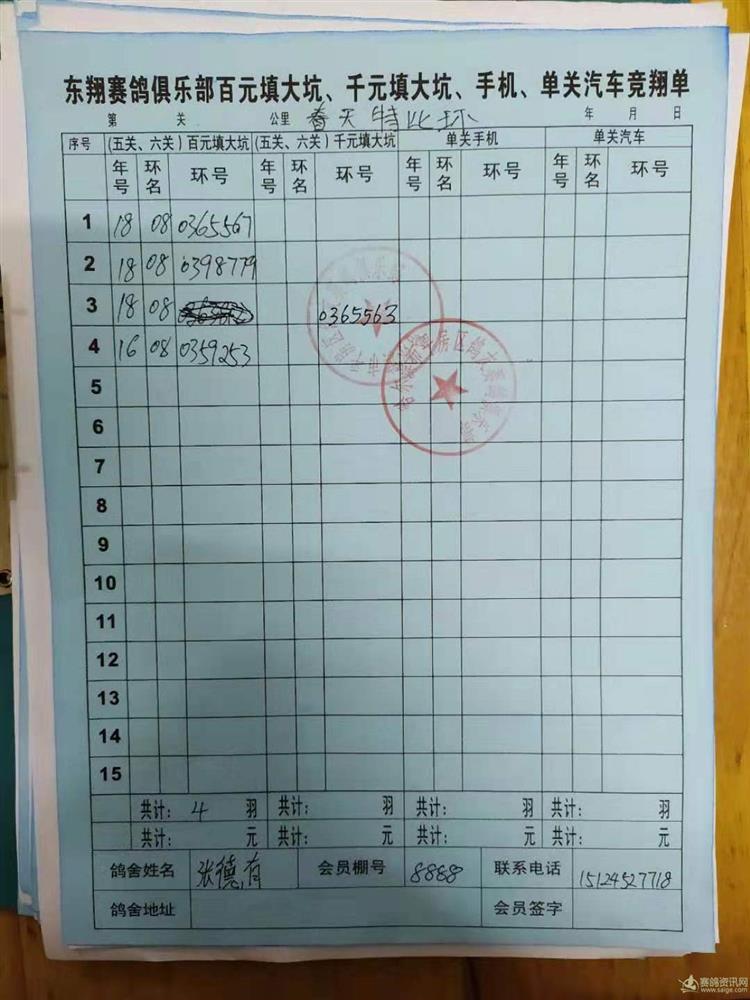 东翔赛鸽俱乐部百元填大坑、千元填大坑、手机、单关汽车竞翔单
第 关 公里 春天特比环 年 月 日
序号 (五关、六关)百元填大坑 (五关、六关)千元填大坑 单关手机 单关汽车
年号 环名 环号 年号 环名 环号 年号 环名 环号 年号 环名 环号
1 18 08 0365567
2 18 08 0398779
3 18 08 0365563
4 16 08 0359253
5
6
7
8
9
10
11
12
13
14
15
共计: 4 羽 共计: 羽 共计: 羽 共计: 羽
共计: 元 共计: 元 共计: 元 共计: 元
鸽舍姓名 张德有 会员棚号 8888 联系电话 15124527718
鸽舍地址 会员签字
赛鸽资讯网
www.saige.com